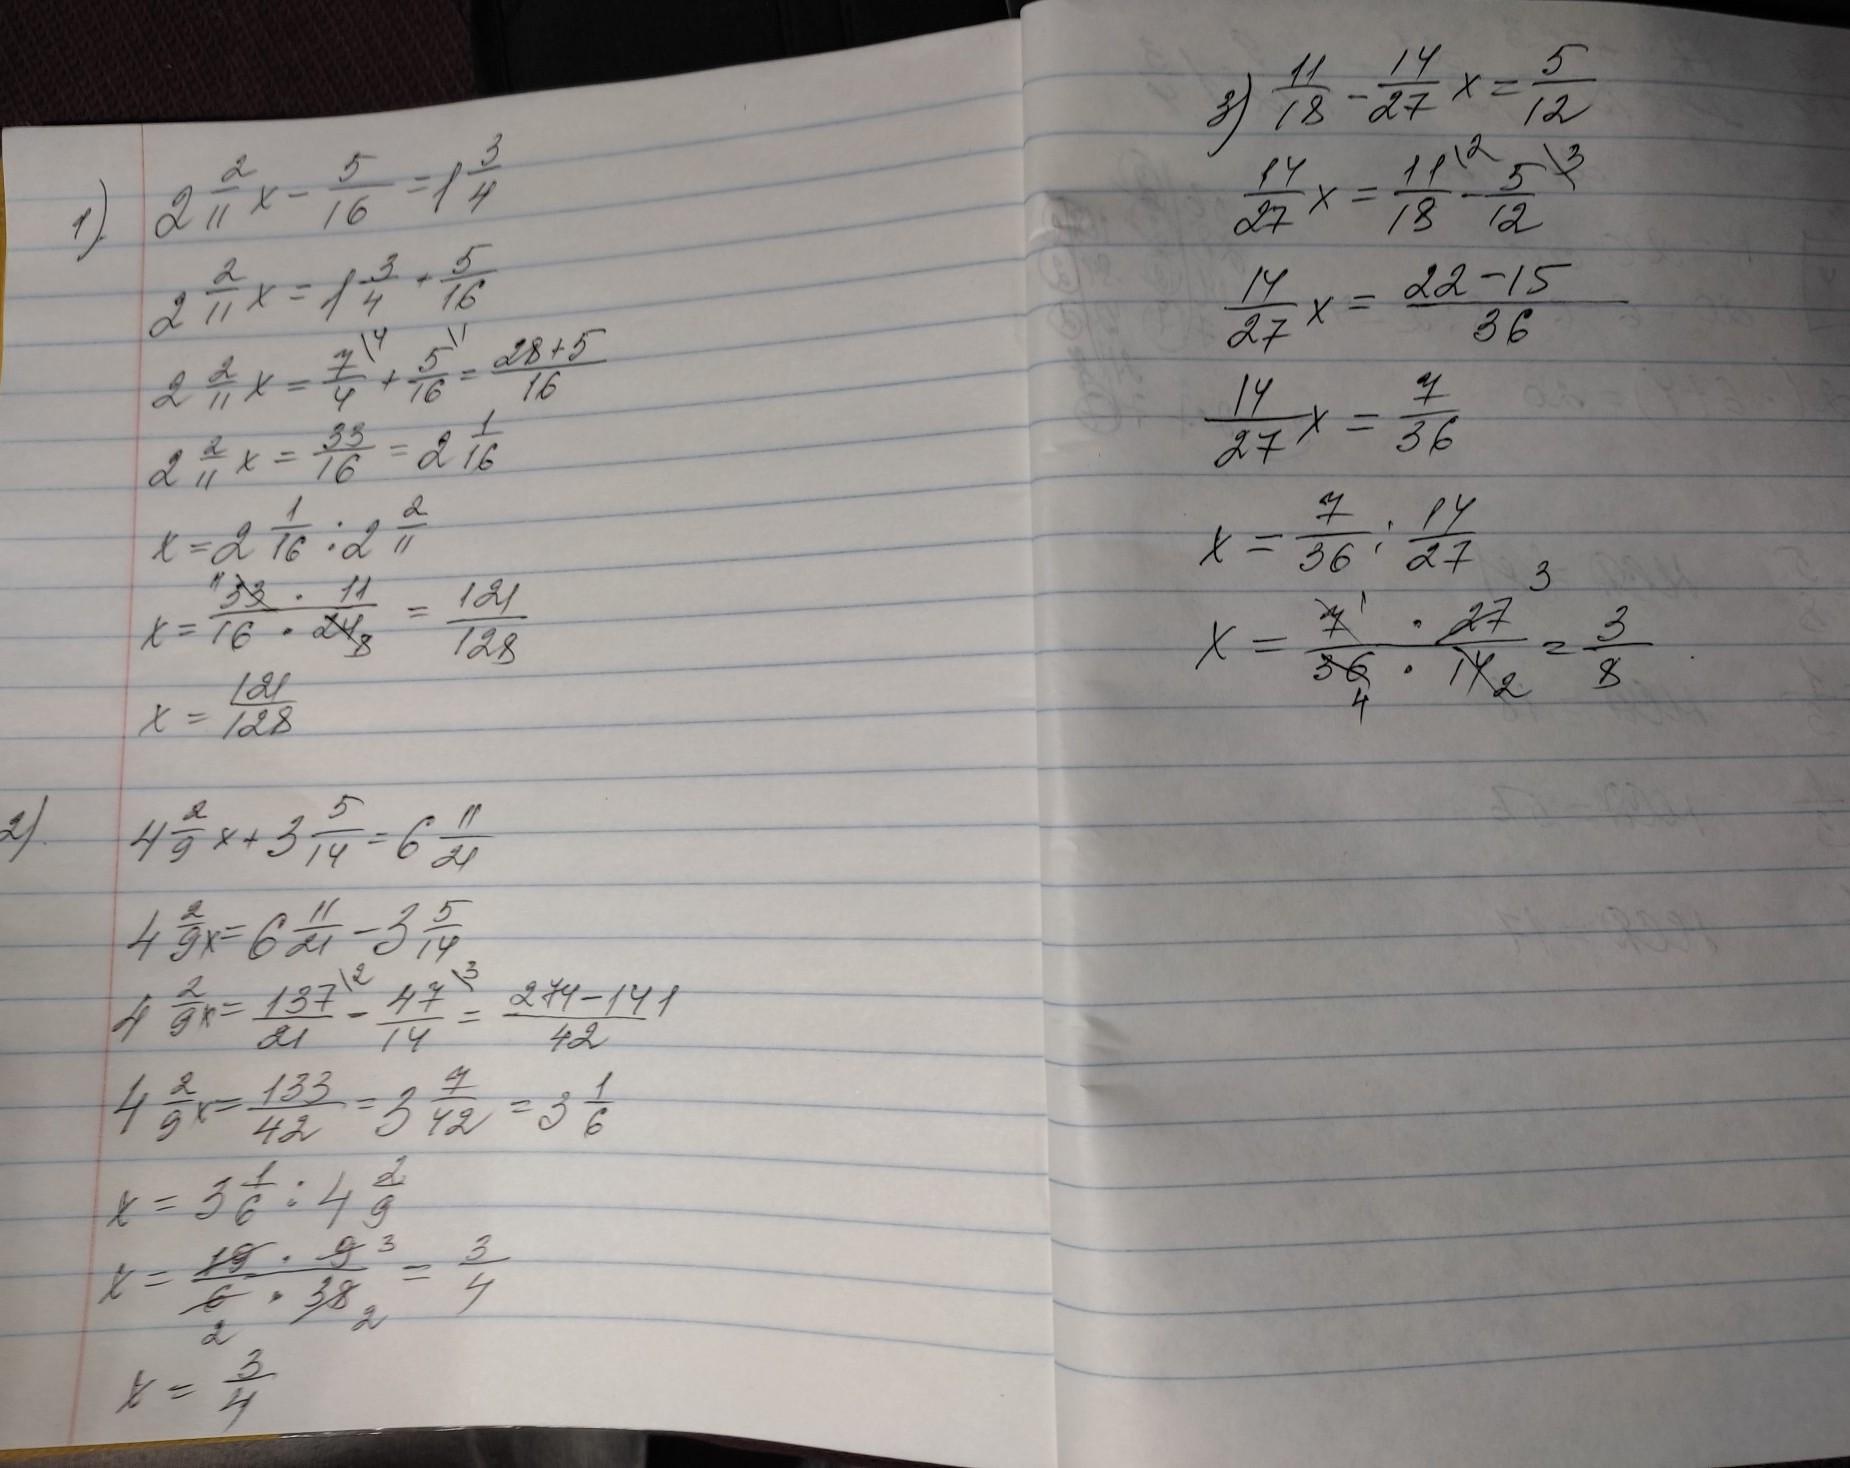 1) 2 2/11 x - 5/16 = 1 3/4
2 2/11 x = 1 3/4 + 5/16
2 2/11 x = 7/4 \4 + 5/16 \1 = 28+5/16
2 2/11 x = 33/16 = 2 1/16
x = 2 1/16 : 2 2/11
x = 11 33 · 11 / 16 · 24 8 = 121/128
x = 121/128
2). 4 2/9 x + 3 5/14 = 6 11/21
4 2/9 x = 6 11/21 - 3 5/14
4 2/9 x = 137/21 \2 - 47/14 \3 = 274-141/42
4 2/9 x = 133/42 = 3 7/42 = 3 1/6
x = 3 1/6 : 4 2/9
x = 19 · 9 3 / 6 2 · 38 2 = 3/4
x = 3/4
3) 11/18 - 14/27 x = 5/12
14/27 x = 11/18 \2 - 5/12 \3
14/27 x = 22-15/36
14/27 x = 7/36
x = 7/36 : 14/27
x = 7 1 · 27 3 / 36 4 · 14 2 = 3/8